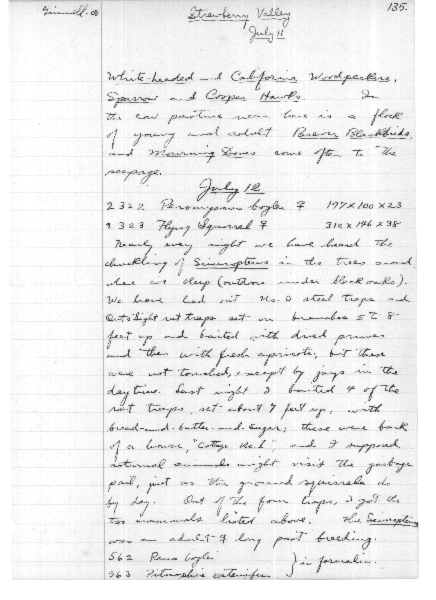 Grinnell-08
Strawberry Valley
135.
July 11
White-headed and California Woodpeckers,
Sparrow and Cooper Hawks. In
the cow pasture near here is a flock
of young and adult Brewer Blackbirds,
and Mourning Doves come often to the
seepage.
July 12
2322 Peromyscus boylei ♀ 197×100×23
2323 Flying Squirrel ♀ 312×146×38
Nearly every night we have heard the
chuckling of Sciuropterus in the trees around
where we sleep (outdoors under black oaks).
We have had out No. 0 steel traps and
Out o' Sight rat traps set on branches 5 to 8
feet up and baited with dried prunes
and then with fresh apricots, but these
were not touched, except by jays in the
daytime. Last night I baited 4 of the
rat traps, set about 7 feet up, with
bread-and-butter-and-sugar; these were back
of a house, "Cottage No. 1", and I supposed
nocturnal animals might visit the garbage
pail, just as the ground squirrels do
by day. Out of the four traps, I got the
two mammals listed above. The Sciuropterus
was an adult ♀ long past breeding.
562 Rana boylei
563 Pituophis catenifer } in formalin.